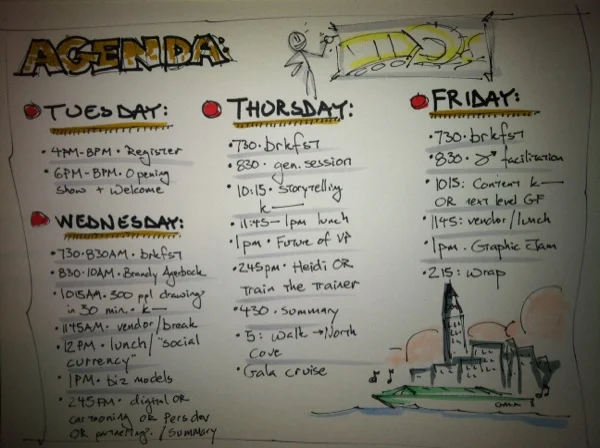 AGENDA:
TUESDAY:
• 4PM-8PM • Register
• 6PM-8PM • Opening
show + Welcome
WEDNESDAY:
• 730-830AM • brkfst
• 830-10AM • Brandy Agerbeck
• 1015AM • 300 ppl drawing
in 30 min. • k—
• 1145AM • vendor/break
• 12PM • lunch/"social
currency"
• 1PM • biz models
• 245PM • digital OR
cartooning OR Pers dev
OR partnering • /Summary
THURSDAY:
• 730 • brkfst
• 830 • gen. session
• 10:15 • Storytelling
k—
• 11:45-1pm lunch
• 1pm • Future of VP
• 245pm • Heidi OR
Train the Trainer
• 430 • Summary
• 5: Walk → North
Cove
• Gala cruise
FRIDAY:
• 730 • brkfst
• 830 • facilitation
• 1015: Content k—
OR next level GF
• 1145: vendor/lunch
• 1pm • Graphic Jam
• 215: wrap